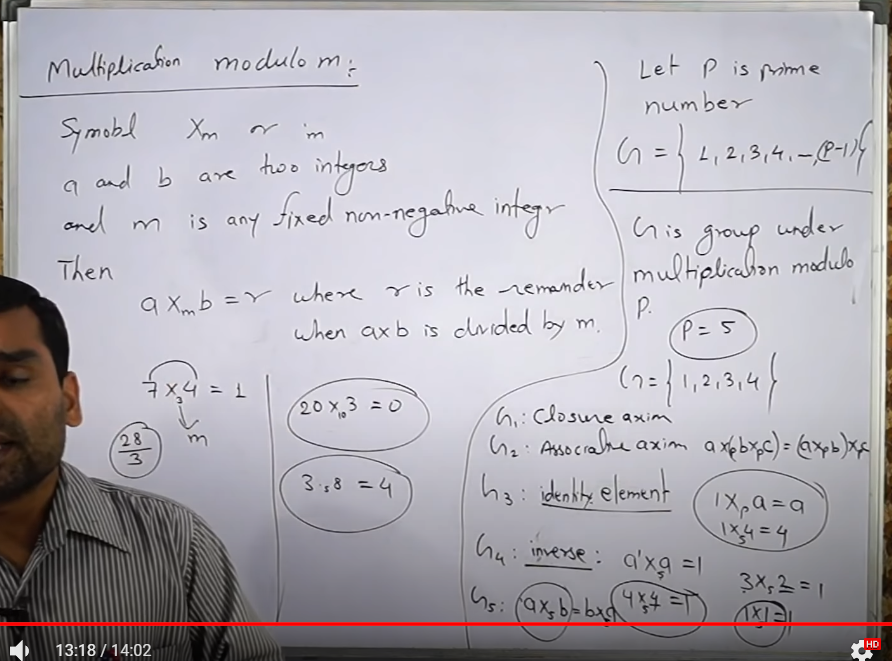 Multiplication modulo m:
Symobl Xm or ·m
a and b are two integers
and m is any fixed non-negative integr
Then
a xm b = r where r is the remander
when axb is divided by m.
7 x3 4 = 1
m
28
3
20 x10 3 = 0
3 ·5 8 = 4
Let P is prime
number
G = { 1, 2, 3, 4, -, (P-1) }
G is group under
multiplication modulo
P.
P = 5
G = { 1, 2, 3, 4 }
G1: Closure axim
G2: Associative axim ax(pbxpc) = (axpb)xpc
G3: identity element
1 xp a = a
1 x5 4 = 4
G4: inverse: a' x5 a = 1
3 x5 2 = 1
G5: a x5 b = bx5a
4 x5 4 = 1
1x1=1
13:18 / 14:02
HD